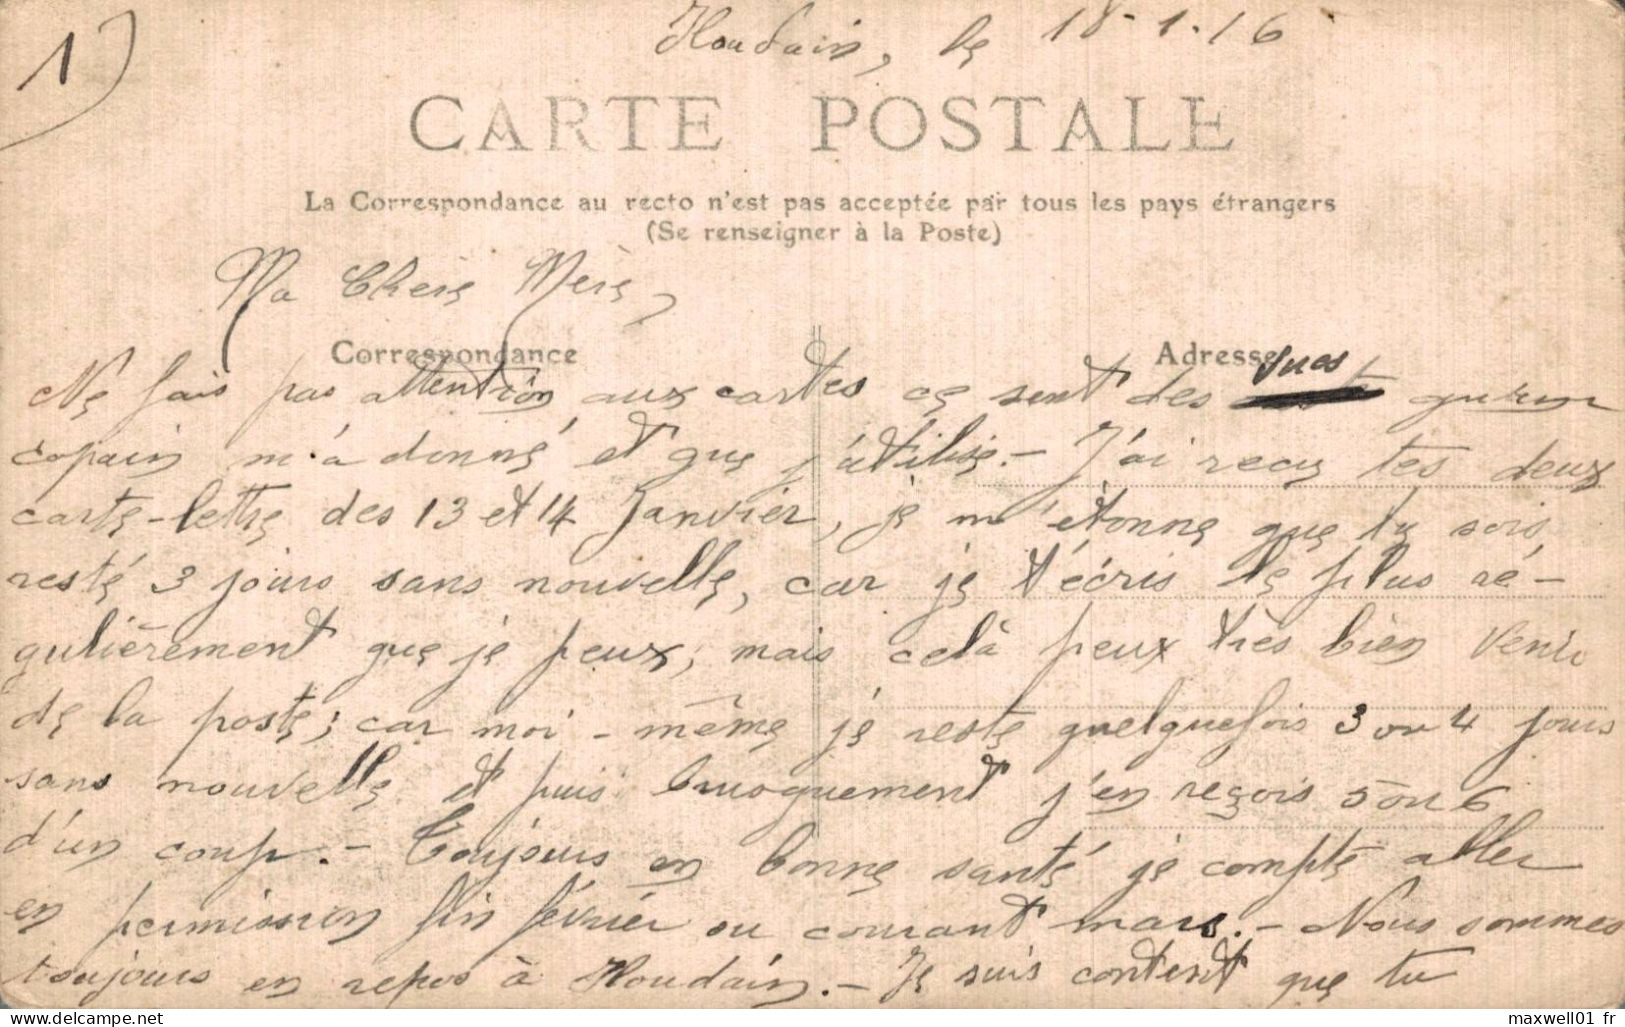 1)
Houdain, le 18-1.16
CARTE POSTALE
La Correspondance au recto n'est pas acceptée par tous les pays étrangers
(Se renseigner à la Poste)
Ma Chère Mère,
Correspondance
Adresse
Ne fais pas attention aux cartes ce sont des vues qu'un
copain m'a donné et que j'utilise.- J'ai recu tes deux
carte-lettre des 13 et 14 Janvier, je m'étonne que tu sois
resté 3 jours sans nouvelle, car je t'écris le plus ré-
gulièrement que je peux; mais celà peux très bien venir
de la poste; car moi-même je reste quelquefois 3 ou 4 jours
sans nouvelle et puis brusquement j'en reçois 5 ou 6
d'un coup.- Toujours en bonne santé je compte aller
en permission fin février ou courant mars.- Nous sommes
toujours en repos à Houdain.- Je suis content que tu
maxwell01 fr